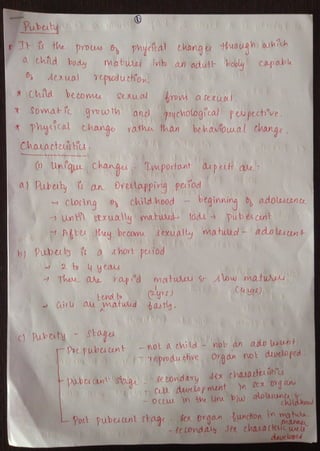 ①
Puberty
* It is the process of physical changes through which
a child body matures into an adult body capable
of sexual reproduction.
* Child becomes sexual from asexual.
* Somatic growth and psychological perspective.
* Physical change rather than behavioural change.
Characteristics.
(i) Unique Changes - Important aspects are:-
a) Puberty is an Overlapping period
→ closing of childhood - beginning of adolescence
→ until sexually matured - kids → pubescent
→ After they become sexually matured - adolescent
b) Puberty is a short period
→ 2 to 4 years
→ There are rapid matures & slow matures
(2 yrs) (4 yrs)
→ Girls are tend to matured fastly.
c) Puberty - Stages
Prepubescent - not a child - not an adolescent
- reproductive organ not developed
Pubescent stage - secondary sex characteristics
- cell development in sex organs
- occurs in the line b/w adolescence & childhood
Post pubescent stage - sex organ function in mature manner
- secondary sex characteristics well developed